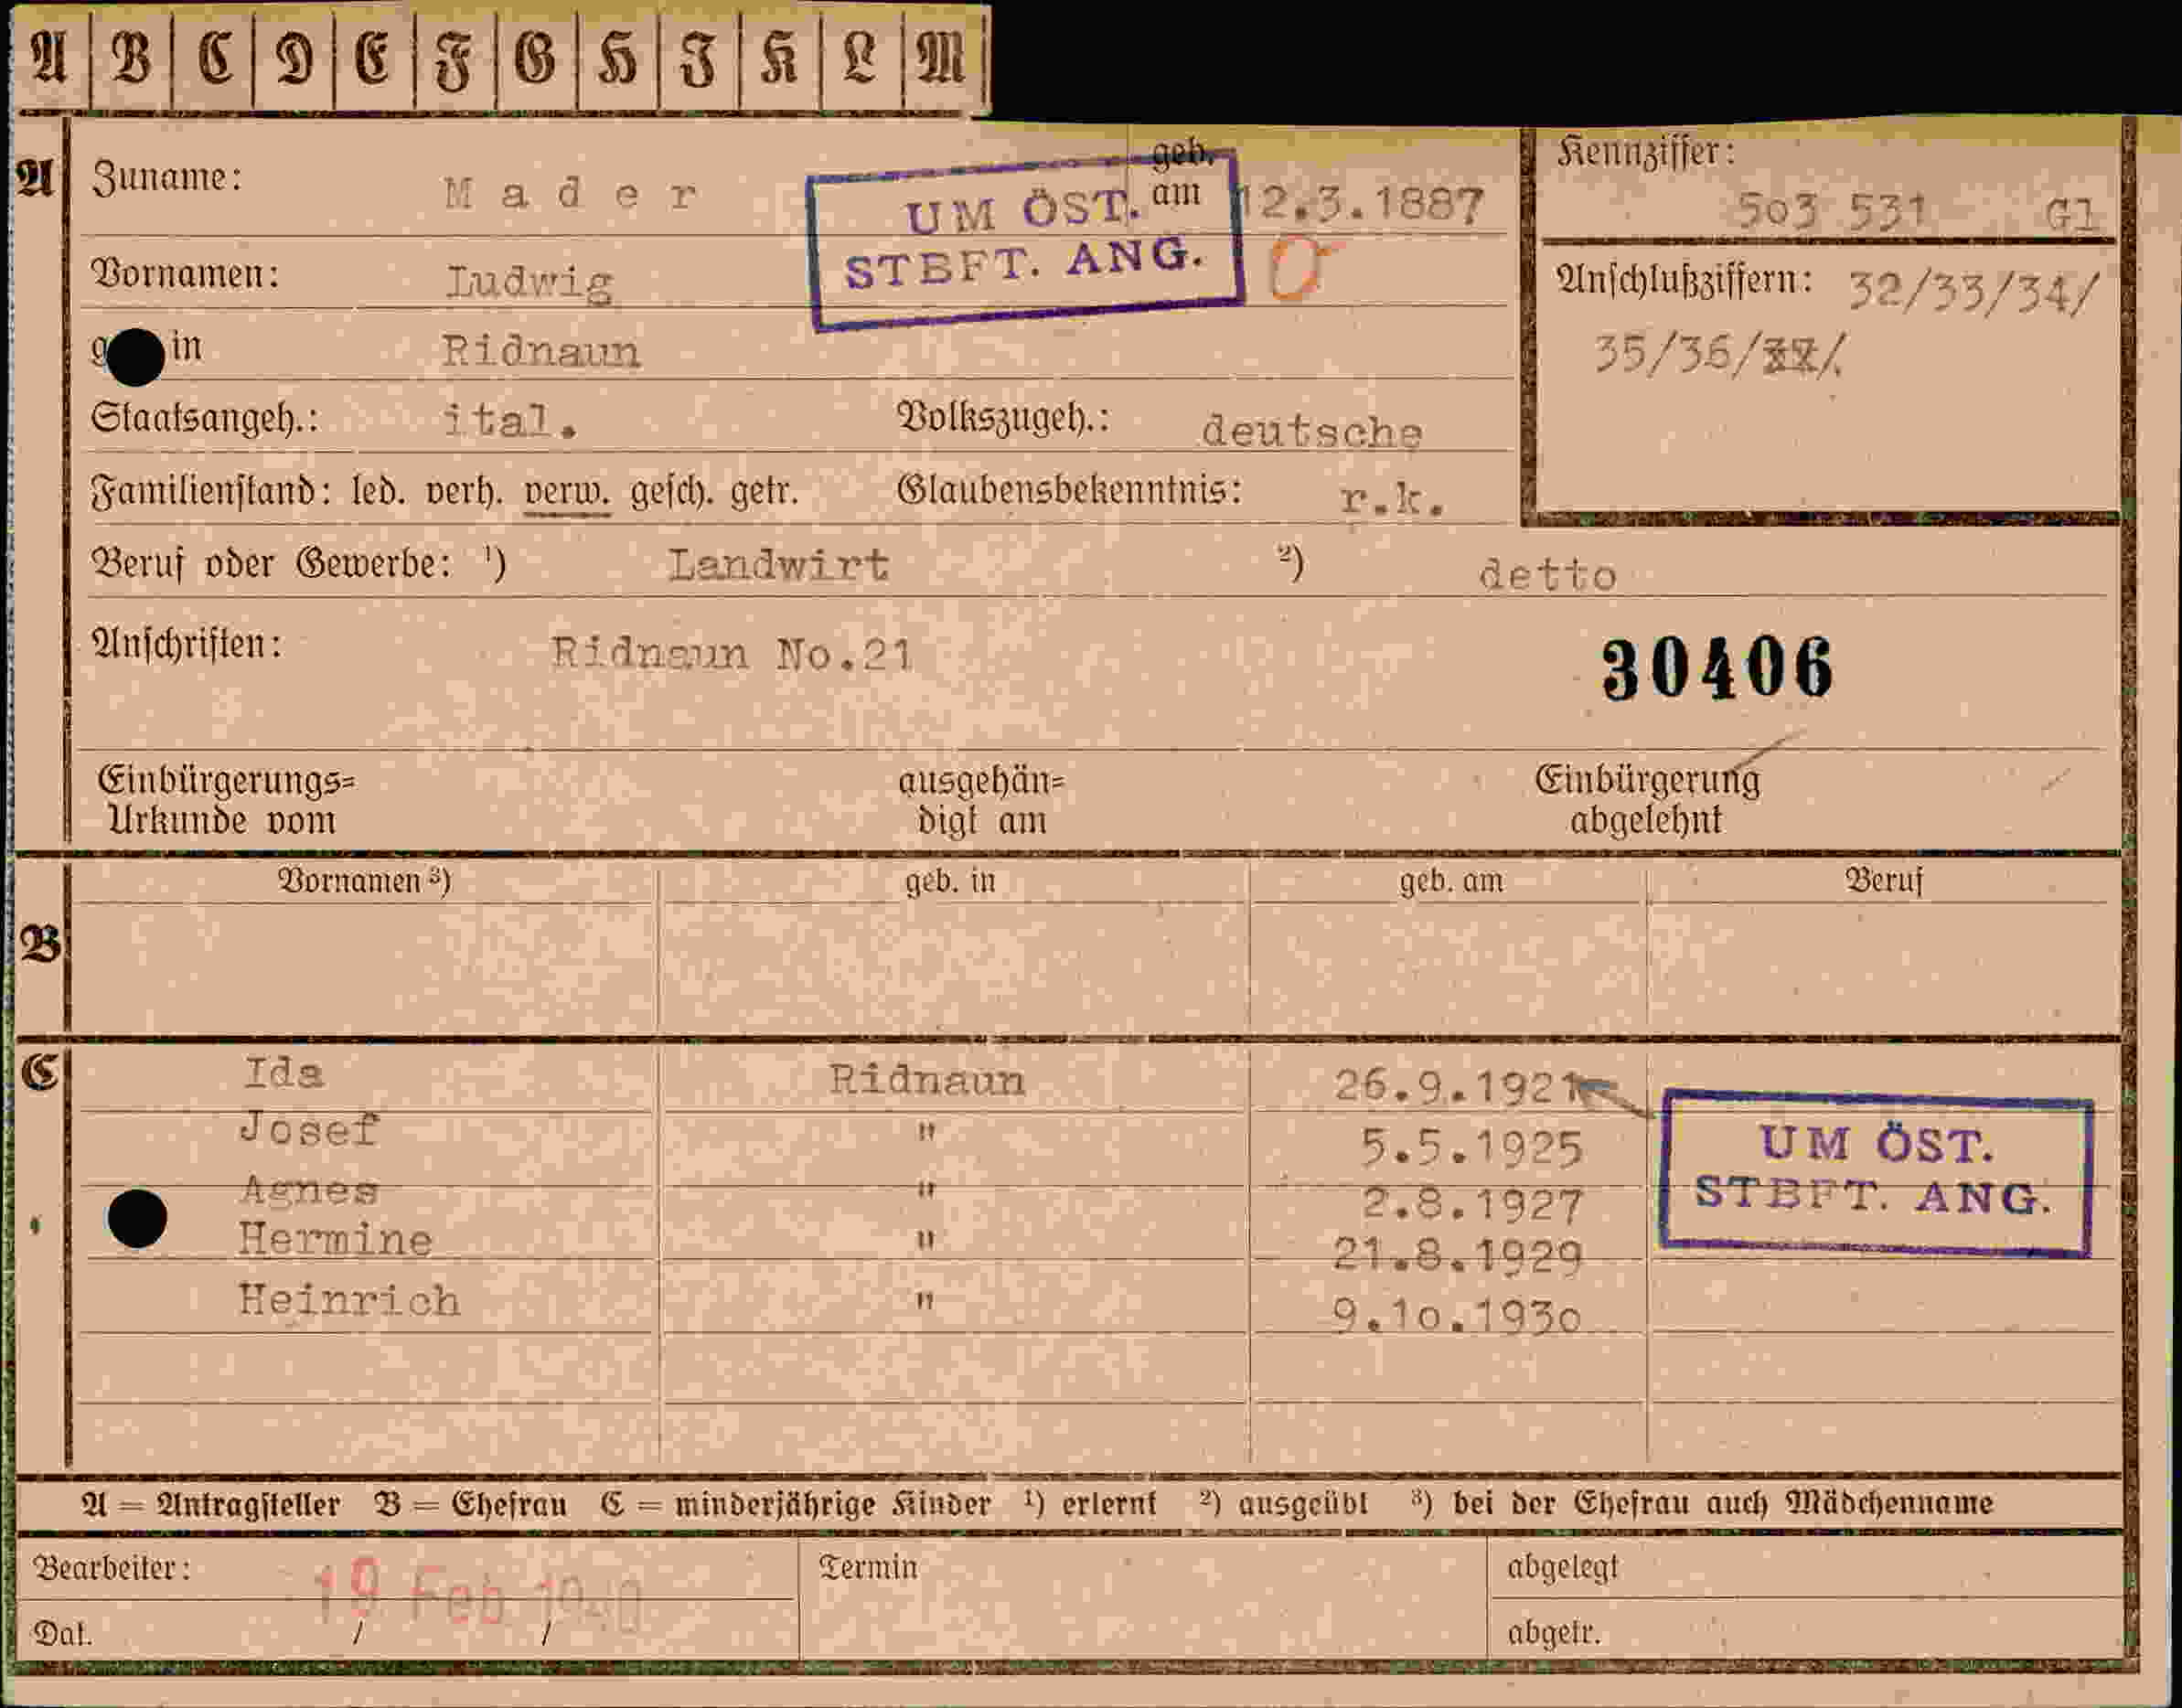 A B C D E F G H J K L M
A Zuname: Mader geb. am 12.3.1887
UM ÖST.
STBFT. ANG.
Kennziffer:
503 531 Gl
Vornamen: Ludwig
Anschlußziffern: 32/33/34/
35/36/
in Ridnaun
Staatsangeh.: ital. Volkszugeh.: deutsche
Familienstand: led. verh. verw. gesch. getr. Glaubensbekenntnis: r.k.
Beruf oder Gewerbe: ¹) Landwirt ²) detto
Anschriften: Ridnaun No.21
30406
Einbürgerungs= ausgehän= Einbürgerung
Urkunde vom digt am abgelehnt
Vornamen ³) geb. in geb. am Beruf
B
C Ida Ridnaun 26.9.1921
Josef " 5.5.1925
Agnes " 2.8.1927
Hermine " 21.8.1929
Heinrich " 9.10.1930
UM ÖST.
STBFT. ANG.
A = Antragsteller B = Ehefrau C = minderjährige Kinder ¹) erlernt ²) ausgeübt ³) bei der Ehefrau auch Mädchenname
Bearbeiter: Termin abgelegt
19 Feb 1940
Dat. / / abgetr.